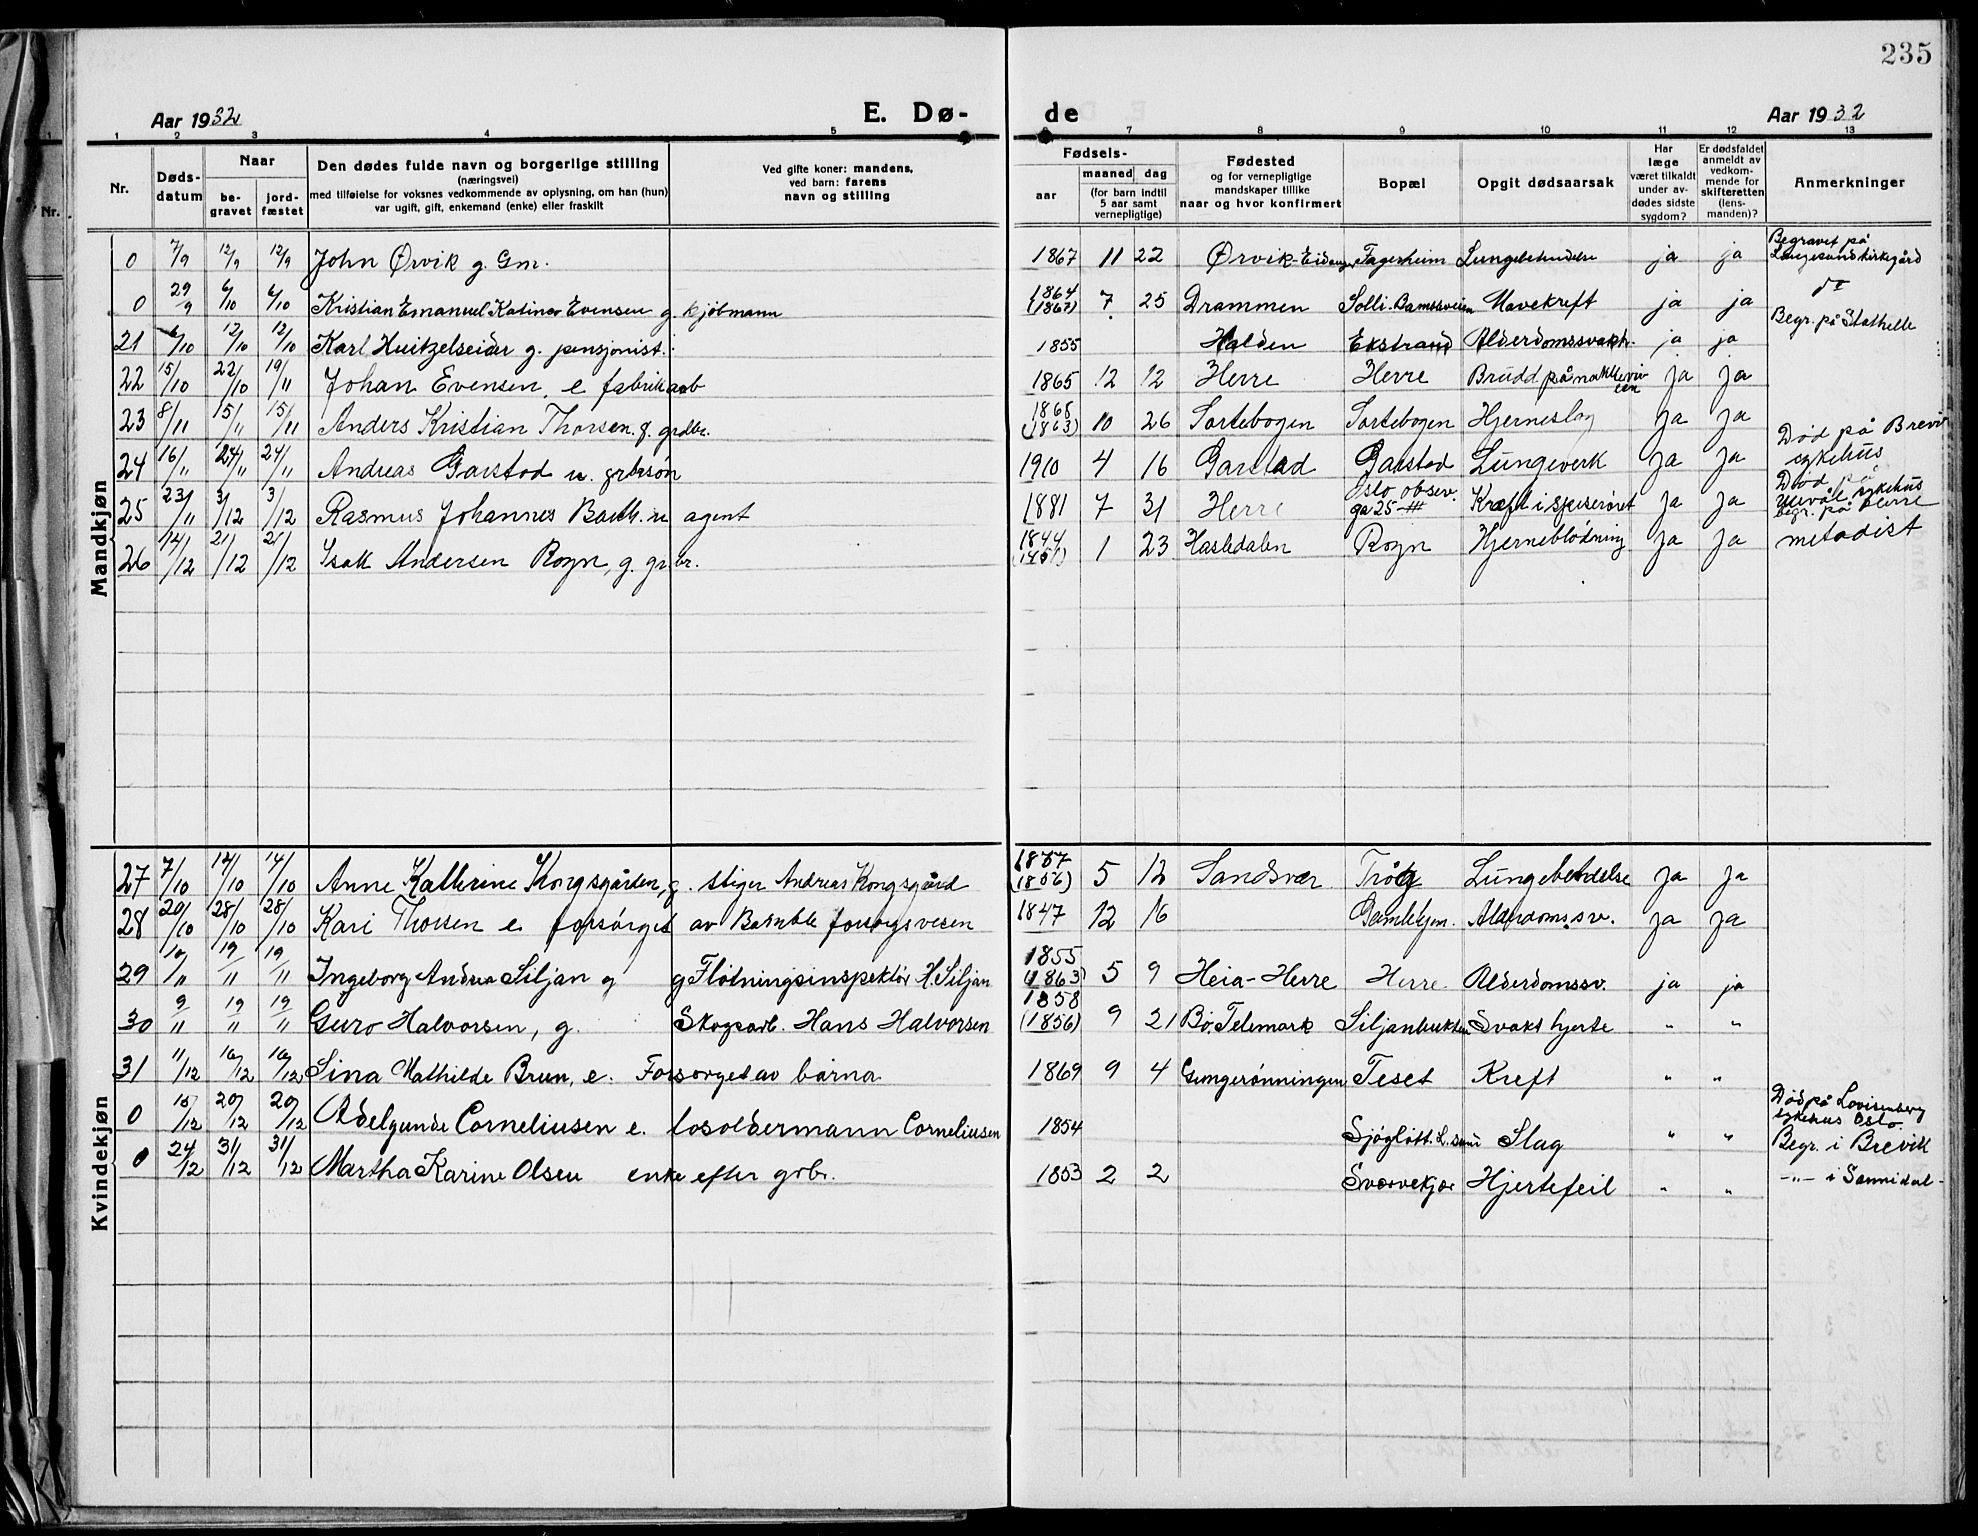 235
Aar 1932 E. Dø- de Aar 1932
1 2 3 4 5 6 7 8 9 10 11 12 13
Nr. Døds-datum Naar be-gravet jord-fæstet Den dødes fulde navn og borgerlige stilling (næringsvei) med tilføielse for voksnes vedkommende av oplysning, om han (hun) var ugift, gift, enkemand (enke) eller fraskilt Ved gifte koner: mandens, ved barn: farens navn og stilling Fødsels- aar maaned dag (for barn indtil 5 aar samt vernepligtige) Fødested og for vernepligtige mandskaper tillike naar og hvor konfirmert Bopæl Opgit dødsaarsak Har læge været tilkaldt under av-dødes sidste sygdom? Er dødsfaldet anmeldt av vedkom-mende for skifteretten (lens-manden)? Anmerkninger
Mandkjøn
0 7/9 12/9 12/9 John Ørvik g. Gm. 1867 11 22 Ørvik-Eidanger Fagerheim Lungebetendelse ja ja Begravet på Langesund kirkegård
0 29/9 6/10 6/10 Kristian Emanuel Katinov Evensen g. kjøbmann 1864 (1867) 7 25 Drammen Solli-Bambleveien Mavekreft ja ja do
21 6/10 12/10 12/10 Karl Huitzelseider g. pensjonist. 1855 Halden Ekstrand Alderdomssvakh. ja ja Begr. på Stathelle
22 15/10 22/10 19/11 Johan Evensen e fabrikarb 1865 12 12 Herre Herre Brudd på nakkevirvelen ja ja
23 8/11 15/11 15/11 Anders Kristian Thorsen. g. grdbr. 1865 (1863) 10 26 Sortebogen Sortebogen Hjerneslag ja ja
24 16/11 24/11 24/11 Andreas Garstad u. grbrsøn 1910 4 16 Garstad Garstad Lungeverk ja ja Død på Brevik sykehus
25 23/11 3/12 3/12 Rasmus Johannes Bakk. u agent 1881 7 31 Herre Oslo observ. ga 25 III Kræft i spiserøret ja ja Død på Ullevål sykehus begr. på Herre
26 14/12 21/12 21/12 Isak Andersen Rogn, g. grbr. 1844 (1851) 1 23 Hasledalen Rogn Hjerneblødning ja ja metodist
Kvindekjøn
27 7/10 14/10 14/10 Anne Kathrine Kongsgården, g. stiger Andreas Kongsgård 1857 (1856) 5 12 Sandsvær Lungebetdelse ja ja
28 20/10 28/10 28/10 Kari Thorsen e. forsørget av Bamble forsorgsvesen 1847 12 16 Gamlehjem. Alderdoms.sv. ja ja
29 10/11 19/11 19/11 Ingeborg Andrea Siljan g g Fløtningsinspektör H. Siljan 1855 (1863) 5 9 Heia-Herre Herre Alderdomssv. ja ja
30 9/11 19/11 19/11 Guro Halvorsen, g. Skogsarb. Hans Halvorsen 1858 (1856) 9 21 Bø, Telemark Siljanbukten Svakt hjerte " "
31 11/12 16/12 16/12 Sina Mathilde Brun, e. Forsørget av barna 1869 9 4 Gungerønningen Teset Kreft " "
0 15/12 20/12 20/12 Adelgunde Corneliusen e. losoldermann Corneliusen 1854 Sjøgløtt. L.sund Slag " " Død på Lovisenberg sykehus Oslo. Begr. i Brevik
0 24/12 31/12 31/12 Martha Karine Olsen enke efter grbr. 1853 2 2 Svarvekjær Hjertefeil " " -"- i Sannidal-